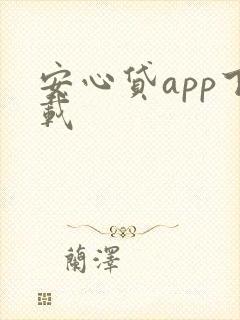 安心贷app下
载
蘭澤